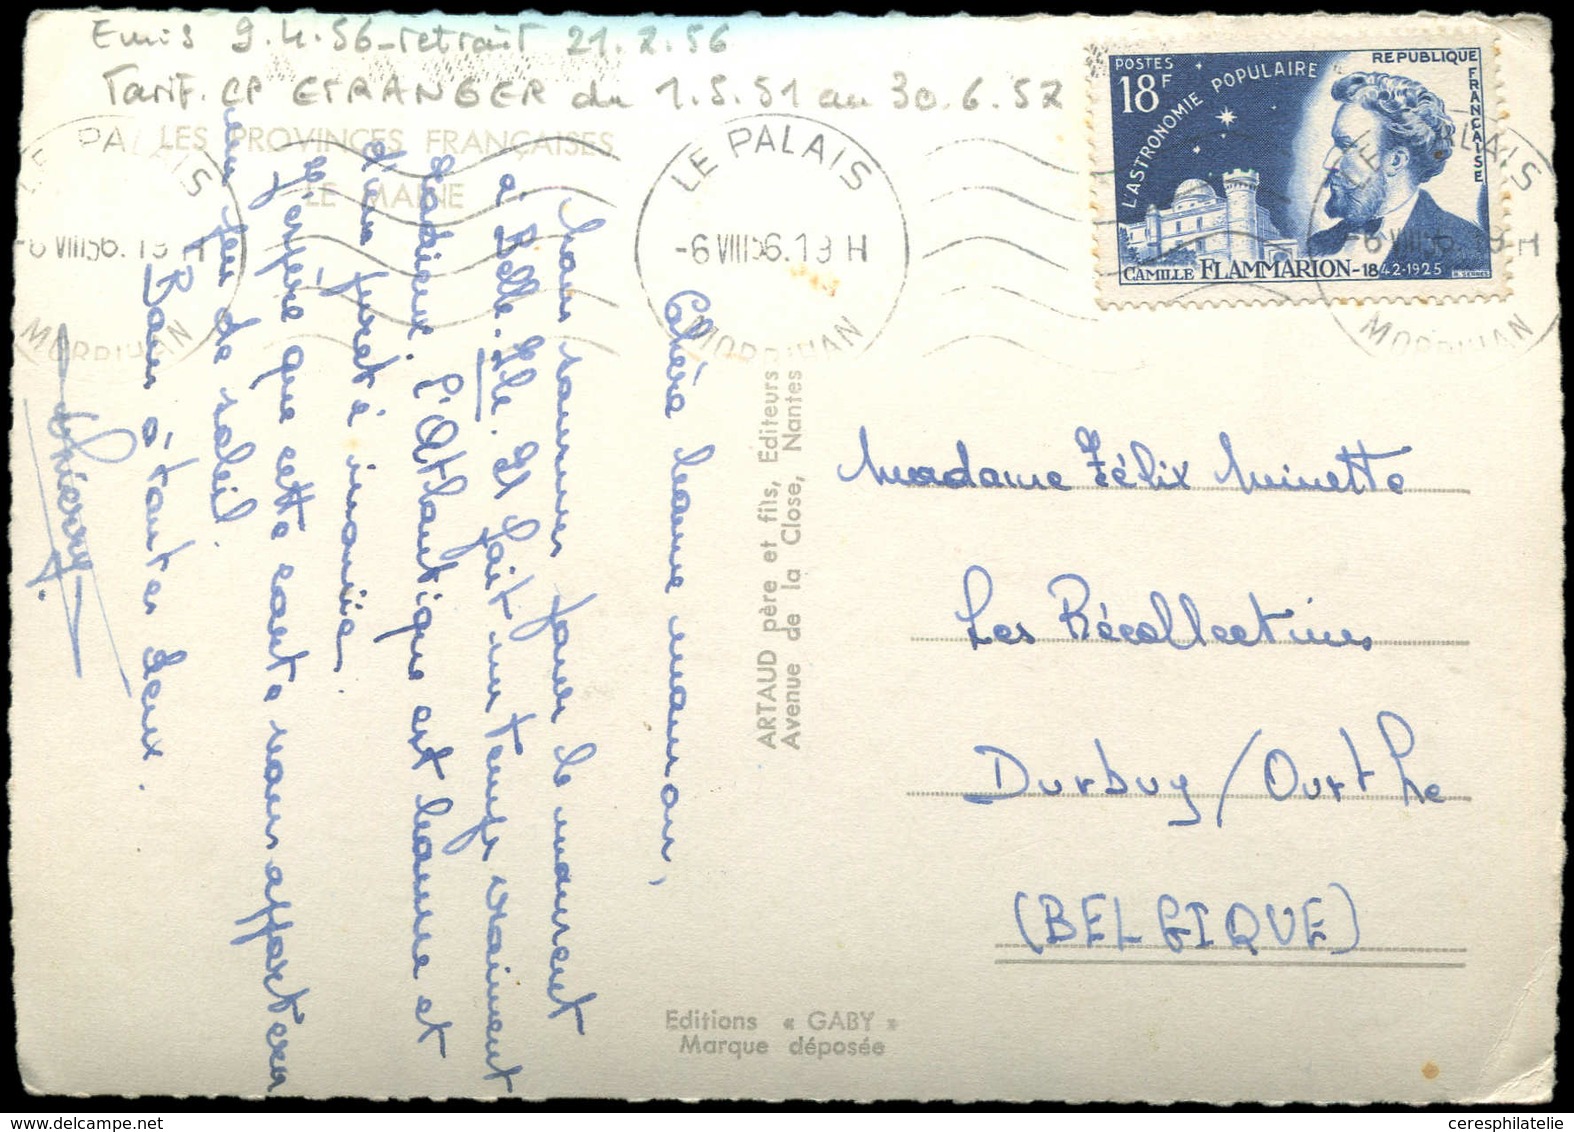 Emis 9.4.56 - retrait 21.7.56
Tarif. CP ETRANGER du 1.5.51 au 30.6.57
LES PROVINCES FRANÇAISES
LE MAINE
LE PALAIS
-6 VIII 56. 19 H
MORBIHAN
LE PALAIS
-6 VIII 56. 19 H
MORBIHAN
LE PALAIS
-6 VIII 56. 19 H
MORBIHAN
POSTES
18F
L'ASTRONOMIE POPULAIRE
REPUBLIQUE FRANÇAISE
CAMILLE FLAMMARION-1842-1925
Chère bonne maman,
Nous sommes pour le moment
à Belle-Ile. Il fait un temps vraiment
radieux. L'Atlantique est bonne et
d'une pureté inouïe.
J'espère que cette carte vous apportera
un peu de soleil.
Bons à toutes deux.
Thierry
ARTAUD père et fils, Editeurs
Avenue de la Close, Nantes
Madame Félix Minette
Les Récollectines
Durbuy/Ourthe
(BELGIQUE)
Editions « GABY »
Marque déposée
ceresphilatelie